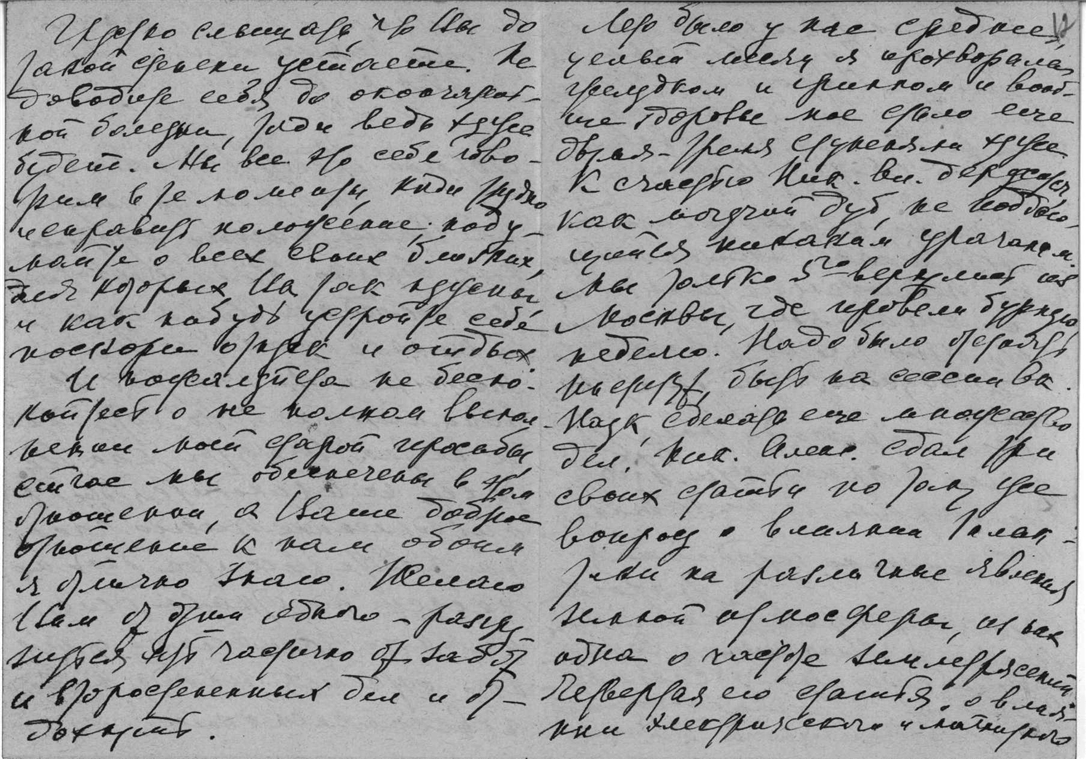 Чудно слышать, что Вы до
такой степени устаете. Не
доводите себя до окончатель-
ной болезни, тогда ведь хуже
будет. Мы все это себе гово-
рим в те моменты, когда трудно
исправить положение; поду-
майте о всех своих близких,
для которых Вы так нужны
и как нибудь устройте себе
поскорее отпуск и отдых
И пожалуйста не беспо-
койтесь о не полном выпол-
нении моей старой просьбы
сейчас мы обеспечены в этом
отношении, а Ваше доброе
отношение к нам обоим
я отлично знаю. Желаю
Вам от души одного – разгру-
зиться хоть частично от забот
и второстепенных дел и от-
дохнуть.
Лето было у нас среднее,
целый месяц я прохворала
желудком и гриппом и вооб-
ще здоровье мое стало еще
хуже
К счастью Ник. Ал. держится,
как могучий дуб, не поддаю-
щийся никаким ураганам.
Мы только 5го вернулись из
Москвы, где провели бурную
неделю. Надо было
быть на сессии Ак.
Наук, сделать еще множество
дел. Ник. Алекс. сдал три
своих статьи по тому же
вопросу о влиянии
на различные явления
земной атмосферы, из них
одна о частоте землетрясений
Четвертая его статья: о влия-
нии электрического и магнитного